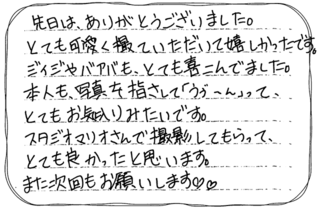 先日は、ありがとうございました。
とても可愛く撮っていただいて嬉しかったです。
ジイジやバアバも、とても喜こんでました。
本人も、写真を指さして「うぅーん」って、
とてもお気に入りみたいです。
スタジオマリオさんで撮影してもらって、
とても良かったと思います。
また次回もお願いします♡♡